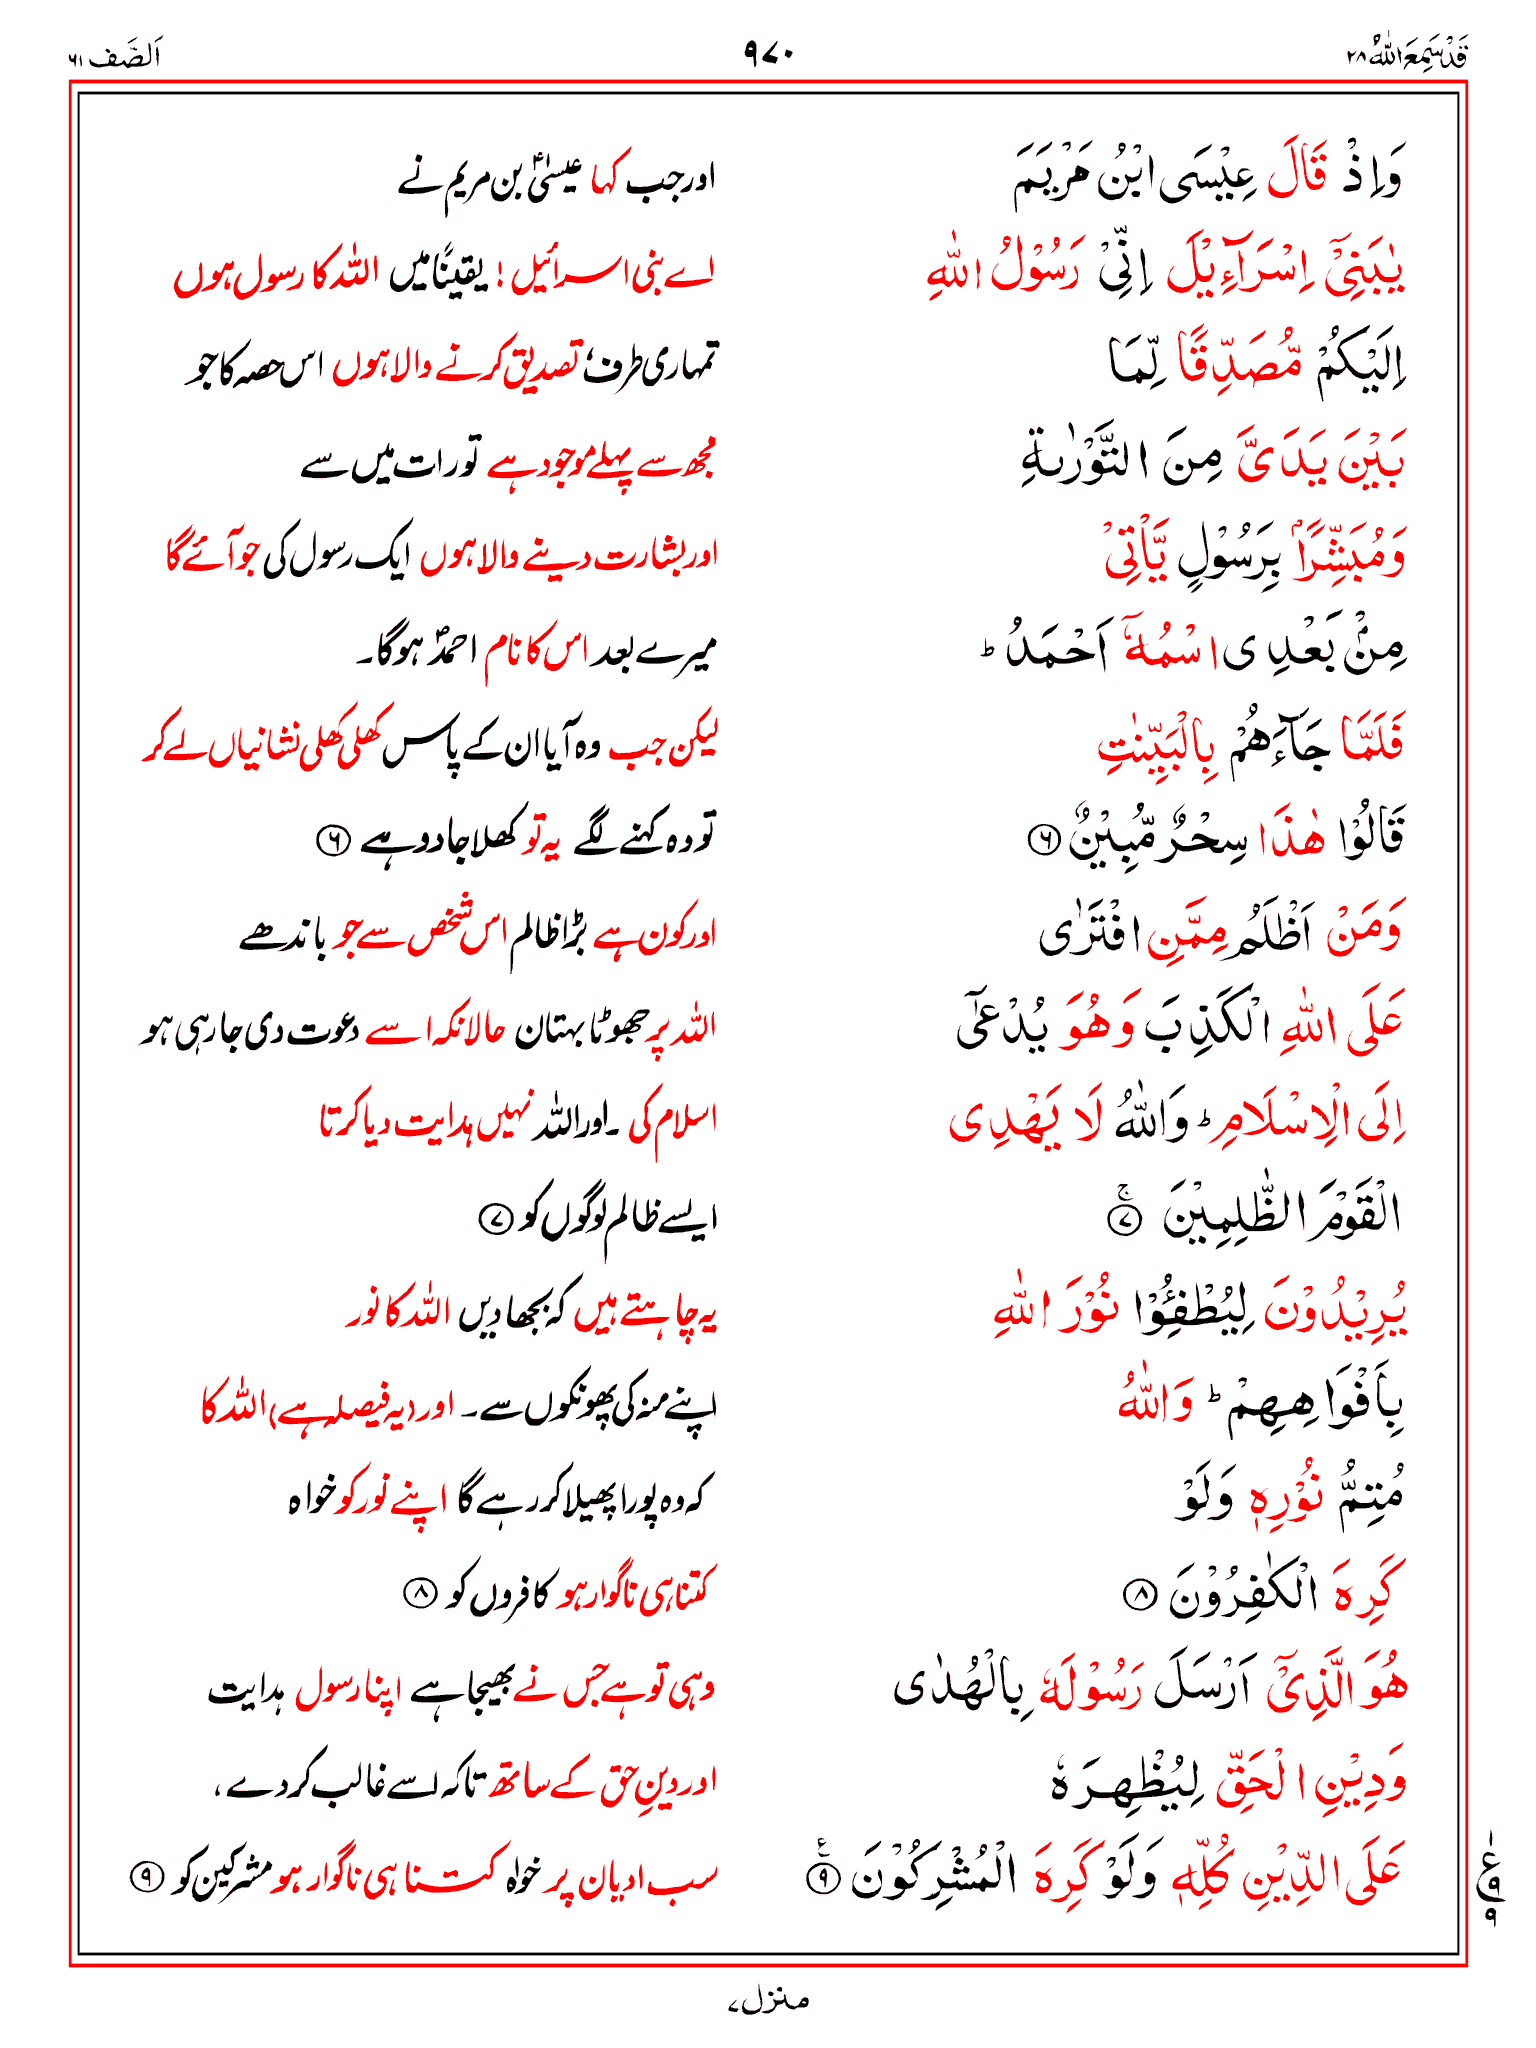 قَدْ سَمِعَ اللهُ ۲۸ ۹۷۰ اَلصَّف ۶۱
وَاِذْ قَالَ عِيْسَى ابْنُ مَرْيَمَ اور جب کہا عیسیٰؑ بن مریم نے
يٰبَنِيْٓ اِسْرَآءِيْلَ اِنِّيْ رَسُوْلُ اللهِ اے بنی اسرائیل! یقیناً میں اللہ کا رسول ہوں
اِلَيْكُمْ مُّصَدِّقًا لِّمَا تمہاری طرف، تصدیق کرنے والا ہوں اس حصہ کا جو
بَيْنَ يَدَيَّ مِنَ التَّوْرٰىةِ مجھ سے پہلے موجود ہے تورات میں سے
وَمُبَشِّرًاۢ بِرَسُوْلٍ يَّاْتِيْ اور بشارت دینے والا ہوں ایک رسول کی جو آئے گا
مِنْۢ بَعْدِى اسْمُهٗٓ اَحْمَدُ ؕ میرے بعد اس کا نام احمدؐ ہوگا۔
فَلَمَّا جَآءَهُمْ بِالْبَيِّنٰتِ لیکن جب وہ آیا ان کے پاس کھلی کھلی نشانیاں لے کر
قَالُوْا هٰذَا سِحْرٌ مُّبِيْنٌ ۶ تو وہ کہنے لگے یہ تو کھلا جادو ہے ۶
وَمَنْ اَظْلَمُ مِمَّنِ افْتَرٰى اور کون ہے بڑا ظالم اس شخص سے جو باندھے
عَلَى اللهِ الْكَذِبَ وَهُوَ يُدْعٰٓى اللہ پر جھوٹا بہتان حالانکہ اسے دعوت دی جارہی ہو
اِلَى الْاِسْلَامِ ؕ وَاللهُ لَا يَهْدِى اسلام کی ۔اور اللہ نہیں ہدایت دیا کرتا
الْقَوْمَ الظّٰلِمِيْنَ ۚ ۷ ایسے ظالم لوگوں کو ۷
يُرِيْدُوْنَ لِيُطْفِـُٔوْا نُوْرَ اللهِ یہ چاہتے ہیں کہ بجھا دیں اللہ کا نور
بِاَفْوَاهِهِمْ ؕ وَاللهُ اپنے منہ کی پھونکوں سے۔ اور (یہ فیصلہ ہے) اللہ کا
مُتِمُّ نُوْرِهٖ وَلَوْ کہ وہ پورا پھیلا کر رہے گا اپنے نور کو خواہ
كَرِهَ الْكٰفِرُوْنَ ۸ کتنا ہی ناگوار ہو کافروں کو ۸
هُوَ الَّذِيْٓ اَرْسَلَ رَسُوْلَهٗ بِالْهُدٰى وہی تو ہے جس نے بھیجا ہے اپنا رسول ہدایت
وَدِيْنِ الْحَقِّ لِيُظْهِرَهٗ اور دینِ حق کے ساتھ تاکہ اسے غالب کردے،
عَلَى الدِّيْنِ كُلِّهٖ وَلَوْ كَرِهَ الْمُشْرِكُوْنَ ۹ ع سب ادیان پر خواہ کتنا ہی ناگوار ہو مشرکین کو ۹
۱ ع ۹ ۹
منزل ۷